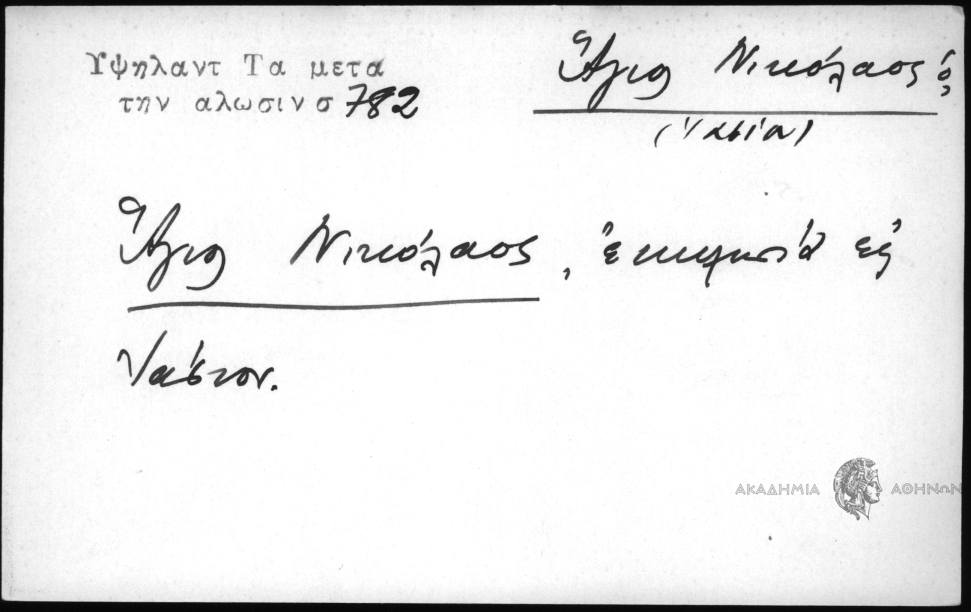 Υψηλαντ Τα μετα
την αλωσιν σ 782
Ἅγιος Νικόλαος ὁ,
Ἅγιος Νικόλαος, ἐκκλησία εἰς
Ἰάσιον.
ΑΚΑΔΗΜΙΑ ΑΘΗΝΩΝ